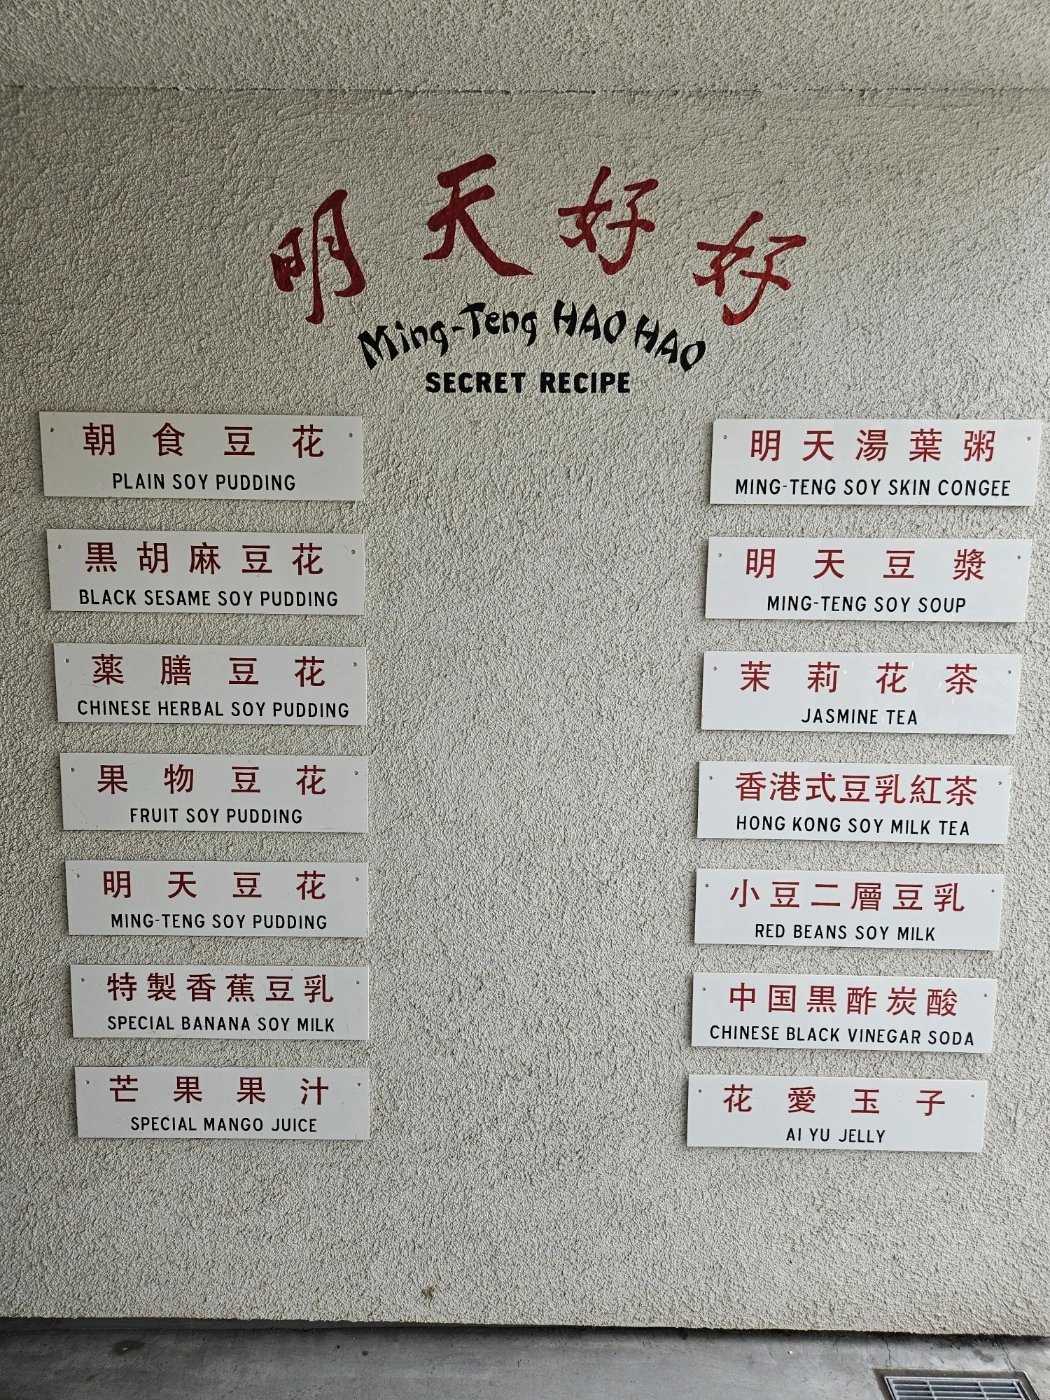 明天好好
Ming-Teng HAO HAO
SECRET RECIPE
朝食豆花
PLAIN SOY PUDDING
黒胡麻豆花
BLACK SESAME SOY PUDDING
薬膳豆花
CHINESE HERBAL SOY PUDDING
果物豆花
FRUIT SOY PUDDING
明天豆花
MING-TENG SOY PUDDING
特製香蕉豆乳
SPECIAL BANANA SOY MILK
芒果果汁
SPECIAL MANGO JUICE
明天湯葉粥
MING-TENG SOY SKIN CONGEE
明天豆漿
MING-TENG SOY SOUP
茉莉花茶
JASMINE TEA
香港式豆乳紅茶
HONG KONG SOY MILK TEA
小豆二層豆乳
RED BEANS SOY MILK
中国黒酢炭酸
CHINESE BLACK VINEGAR SODA
花愛玉子
AI YU JELLY